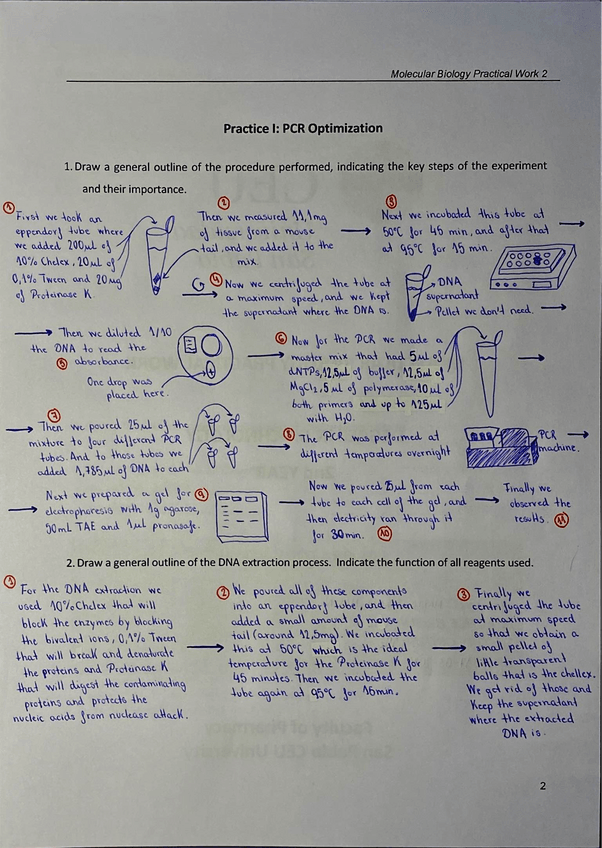 Molecular Biology Practical Work 2
Practice I: PCR Optimization
1. Draw a general outline of the procedure performed, indicating the key steps of the experiment
and their importance.
1
First we took an
eppendorf tube where
we added 200μl of
10% Chelex, 20μl of
0,1% Tween and 20mg
of Proteinase K.
2
Then we measured 11,1mg
of tissue from a mouse
tail, and we added it to the
mix.
3
Next we incubated this tube at
50°C for 45 min, and after that
at 95°C for 15 min.
4 Now we centrifuged the tube at
a maximum speed, and we kept
the supernatant where the DNA is.
DNA
supernatant
Pellet we don't need.
Then we diluted 1/10
the DNA to read the
5 absorbance.
One drop was
placed here.
6 Now for the PCR we made a
master mix that had 5μl of
dNTPs, 12,5μl of buffer, 12,5μl of
MgCl2, 5μl of polymerase, 10μl of
both primers and up to 125μl
with H2O.
7
Then we poured 25μl of the
mixture to four different PCR
tubes. And to those tubes we
added 1,785μl of DNA to each
8 The PCR was performed at
different temperatures overnight
PCR
machine.
Next we prepared a gel for 9
electrophoresis with 1g agarose,
50ml TAE and 1μl pronasafe.
Now we poured 25μl from each
tube to each cell of the gel, and
then electricity ran through it
for 30min. 10
Finally we
observed the
results. 11
2. Draw a general outline of the DNA extraction process. Indicate the function of all reagents used.
1
For the DNA extraction we
used 10% Chelex that will
block the enzymes by blocking
the bivalent ions, 0,1% Tween
that will break and denaturate
the proteins and Proteinase K
that will digest the contaminating
proteins and protects the
nucleic acids from nuclease attack.
2 We poured all of these components
into an eppendorf tube, and then
added a small amount of mouse
tail (around 12,5mg). We incubated
this at 50°C which is the ideal
temperature for the Proteinase K for
45 minutes. Then we incubated the
tube again at 95°C for 15min.
3 Finally we
centrifuged the tube
at maximum speed
so that we obtain a
small pellet of
little transparent
balls that is the chellex.
We get rid of those and
Keep the supernatant
where the extracted
DNA is.
2